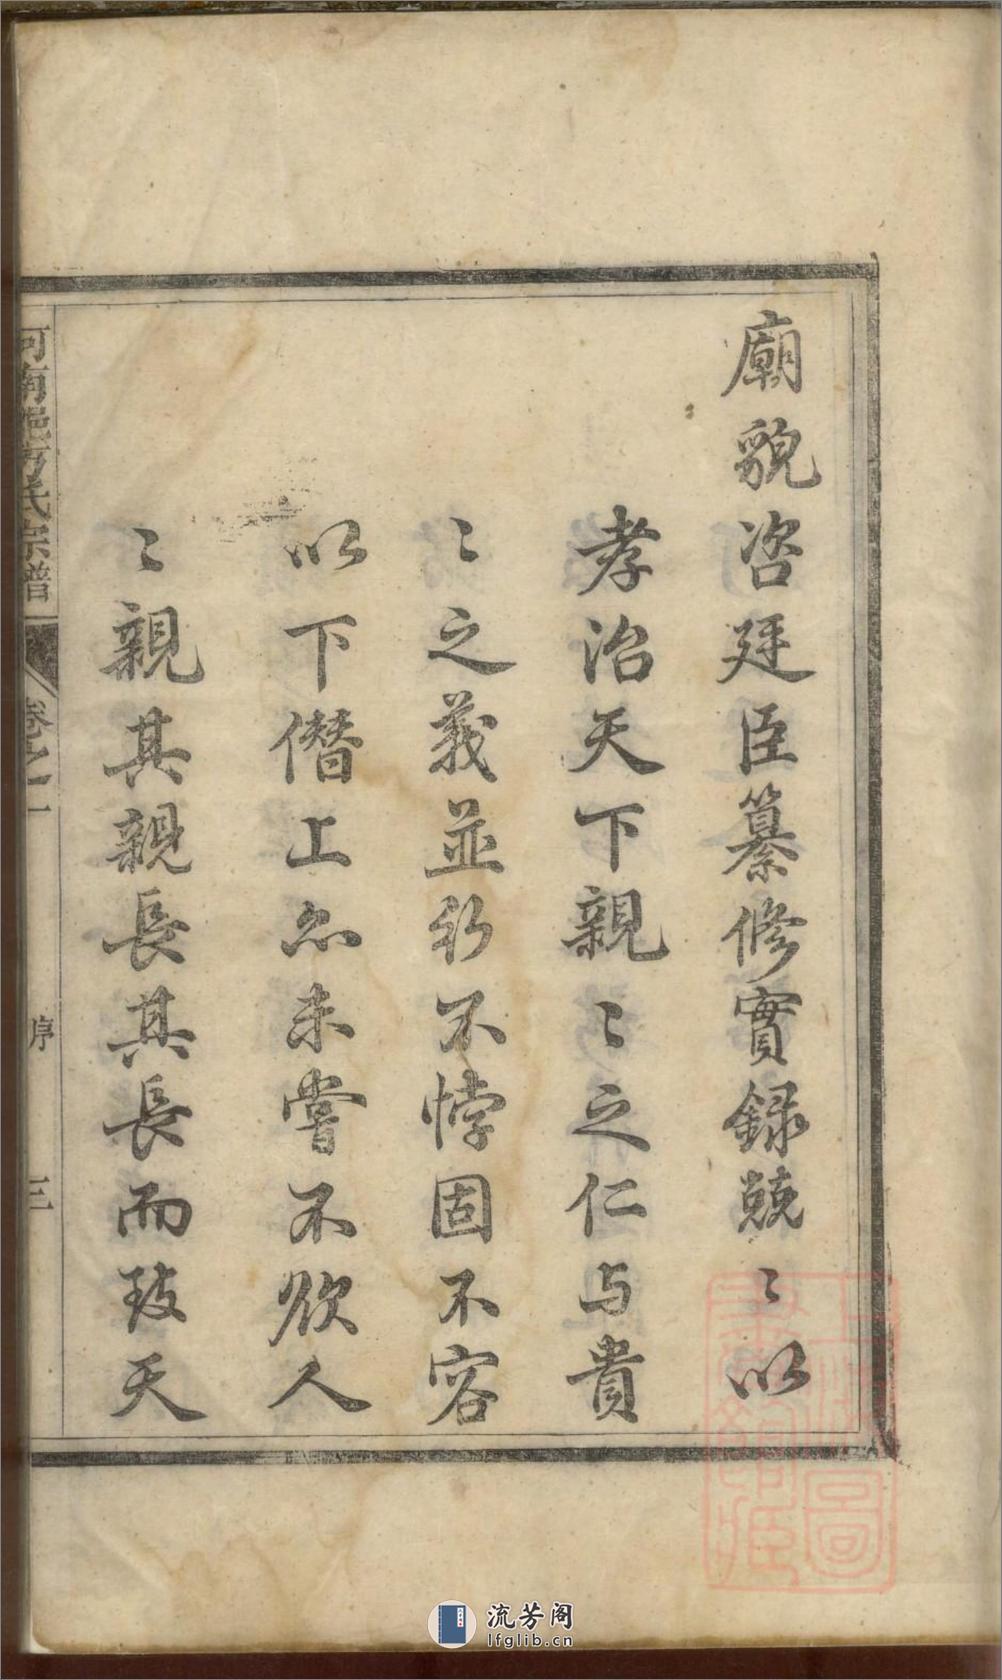 廟貌咨廷臣纂修實録兢〻以
孝治天下親〻之仁与貴
〻之義並行不悖固不容
以下僭上亦未嘗不欲人
〻親其親長其長而致天
河南 氏宗譜
卷之一
序
三
上 圖
流芳阁
lfglib.cn